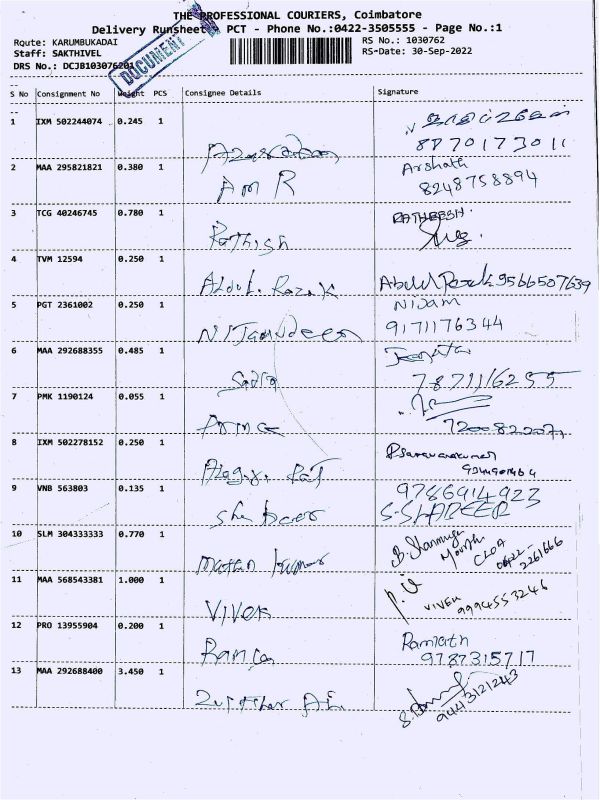 THE PROFESSIONAL COURIERS, Coimbatore
Delivery Runsheet PCT - Phone No.:0422-3505555 - Page No.:1
Route: KARUMBUKADAI RS No.: 1030762
Staff: SAKTHIVEL RS-Date: 30-Sep-2022
DRS No.: DCJB103076201
DOCUMENT
S No Consignment No Weight PCS Consignee Details Signature
1 IXM 502244074 0.245 1
8870173011
2 MAA 295821821 0.380 1 AMR Arshath
8248758894
3 TCG 40246745 0.780 1 Rathish RATHEESH.
4 TVM 12594 0.250 1 Abdul. Razak Abdul Razak 9566507639
5 PGT 2361002 0.250 1 Nijamudeen Nijam
9171176344
6 MAA 292688355 0.485 1 Sadiq
7871116255
7 PMK 1190124 0.055 1 Prince
8 IXM 502278152 0.250 1 Rsaravanakumar
9 VNB 563803 0.135 1 9786914923
S.SHAREEF
10 SLM 304333333 0.770 1 B. Shanmuga
Moorth
CLOA
0422-
2261666
11 MAA 568543381 1.000 1 VIVEK P.V
VIVEK
9994553246
12 PRO 13955904 0.200 1 Ramlath
9787315717
13 MAA 292688400 3.450 1
9443121243